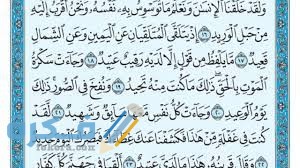 وَلَقَدْ خَلَقْنَا ٱلْإِنسَٰنَ وَنَعْلَمُ مَا تُوَسْوِسُ بِهِۦ نَفْسُهُۥ وَنَحْنُ أَقْرَبُ إِلَيْهِ
مِنْ حَبْلِ ٱلْوَرِيدِ ١٦ إِذْ يَتَلَقَّى ٱلْمُتَلَقِّيَانِ عَنِ ٱلْيَمِينِ وَعَنِ ٱلشِّمَالِ
قَعِيدٌ ١٧ مَّا يَلْفِظُ مِن قَوْلٍ إِلَّا لَدَيْهِ رَقِيبٌ عَتِيدٌ ١٨ وَجَآءَتْ سَكْرَةُ
ٱلْمَوْتِ بِٱلْحَقِّ ذَٰلِكَ مَا كُنتَ مِنْهُ تَحِيدُ ١٩ وَنُفِخَ فِى ٱلصُّورِ ذَٰلِكَ
يَوْمُ ٱلْوَعِيدِ ٢٠ وَجَآءَتْ كُلُّ نَفْسٍ مَّعَهَا سَآئِقٌ وَشَهِيدٌ ٢١ لَّقَدْ
كُنتَ فِى غَفْلَةٍ مِّنْ هَٰذَا فَكَشَفْنَا عَنكَ غِطَآءَكَ فَبَصَرُكَ ٱلْيَوْمَ حَدِيدٌ
٢٢ وَقَالَ قَرِينُهُۥ هَٰذَا مَا لَدَىَّ عَتِيدٌ ٢٣ أَلْقِيَا فِى جَهَنَّمَ كُلَّ كَفَّارٍ
فكرة